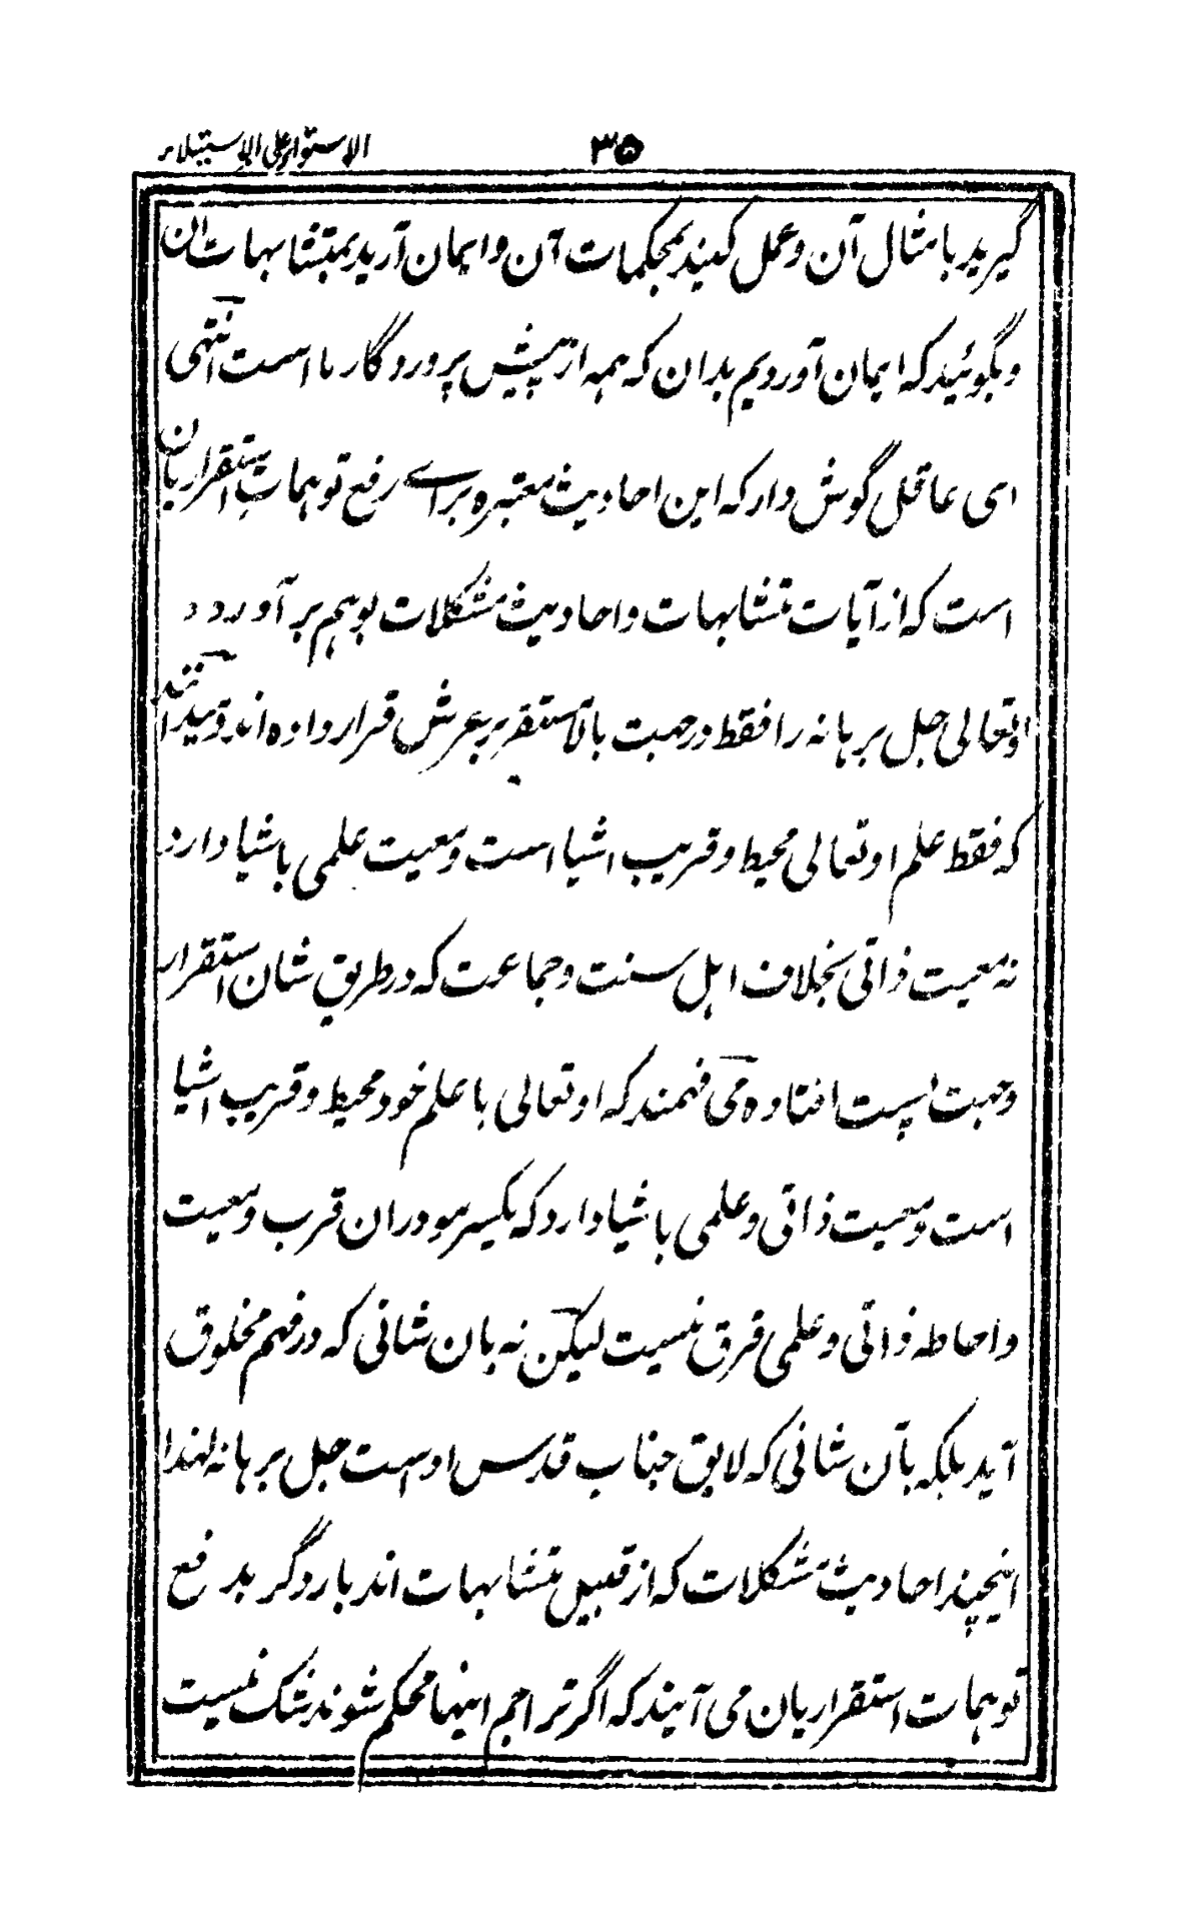 ۳۵ الاستواء علی الاستیلاء
گیرید بامثال آن و عمل کنید بمحکمات آن و ایمان آرید بمتشابهات آن
و بگوئید که ایمان آوردیم بدان که همه از پیش پروردگار ما است انتهی
ای عاقل گوش دار که این احادیث معتبره برای رفع توهمات استقراریان
است که از آیات متشابهات و احادیث مشکلات بوهم بر آورده
اوتعالی جل برهانه را فقط در جهت بالا مستقر بر عرش قرار داده اند و میدانند
که فقط علم اوتعالی محیط و قریب اشیا است و معیت علمی باشیا دارد
نه معیت ذاتی بخلاف اهل سنت و جماعت که در طریق شان استقرار
و جهت نیست افتاده می فهمند که اوتعالی با علم خود محیط و قریب اشیا
است و معیت ذاتی و علمی باشیا دارد که یکسر مو در ان قرب و معیت
و احاطه ذاتی و علمی فرق نیست لیکن نه بان شانی که در فهم مخلوق
آید بلکه بآن شانی که لایق جناب قدس اوست جل برهانه لهذا
اینچنین احادیث مشکلات که از قبیل متشابهات اند بار دگر بدفع
توهمات استقراریان می آیند که اگر تراجم اینها محکم شوند شک نیست